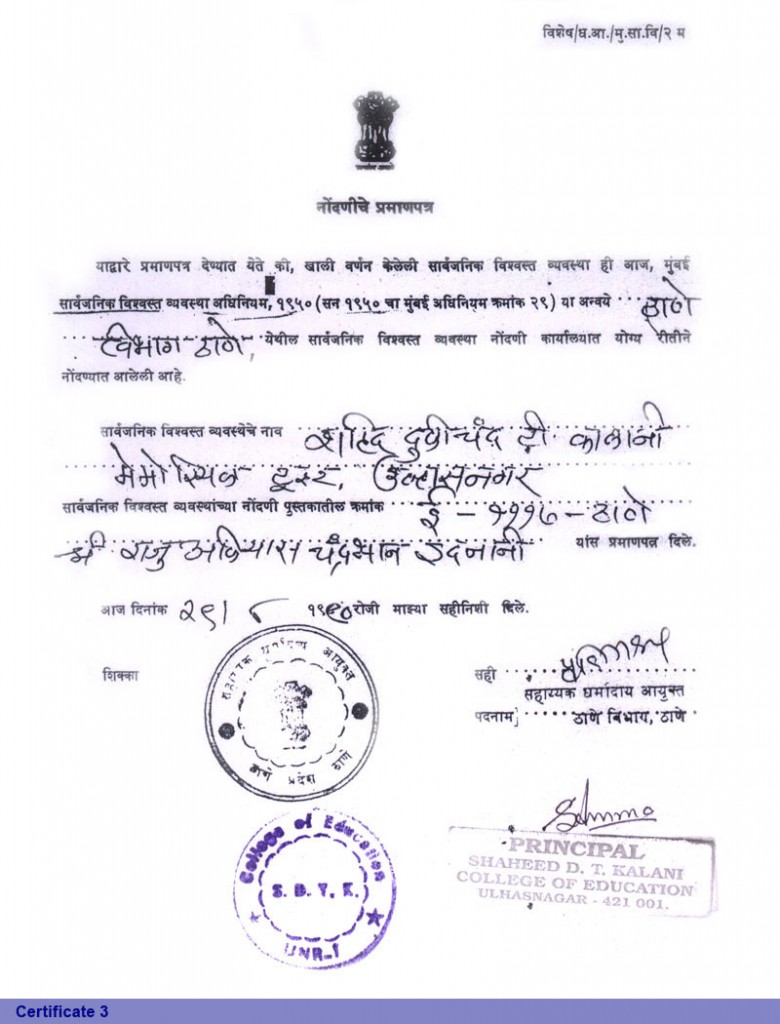 विशेष/ध.आ./मु.सा.वि/२ म
नोंदणीचे प्रमाणपत्र
याद्वारे प्रमाणपत्र देण्यात येते की, खाली वर्णन केलेली सार्वजनिक विश्वस्त व्यवस्था ही आज, मुंबई
सार्वजनिक विश्वस्त व्यवस्था अधिनियम, १९५० (सन १९५० चा मुंबई अधिनियम क्रमांक २९) या अन्वये ठाणे
विभाग ठाणे, येथील सार्वजनिक विश्वस्त व्यवस्था नोंदणी कार्यालयात योग्य रीतीने
नोंदण्यात आलेली आहे.
सार्वजनिक विश्वस्त व्यवस्थेचे नाव शहिद दुनीचंद टी. कालानी
मेमोरियल ट्रस्ट, उल्हासनगर
सार्वजनिक विश्वस्त व्यवस्थांच्या नोंदणी पुस्तकातील क्रमांक ई - १११७ - ठाणे
श्री राजु चंद्रभान इदनानी यांस प्रमाणपत्र दिले.
आज दिनांक २९/८ १९९० रोजी माझ्या सहीनिशी दिले.
शिक्का
सही
सहाय्यक धर्मादाय आयुक्त
पदनाम ठाणे विभाग, ठाणे
सहाय्यक धर्मादाय आयुक्त
ठाणे प्रदेश ठाणे
College of Education
S. D. T. K.
UNR-1
PRINCIPAL
SHAHEED D. T. KALANI
COLLEGE OF EDUCATION
ULHASNAGAR - 421 001.
Certificate 3